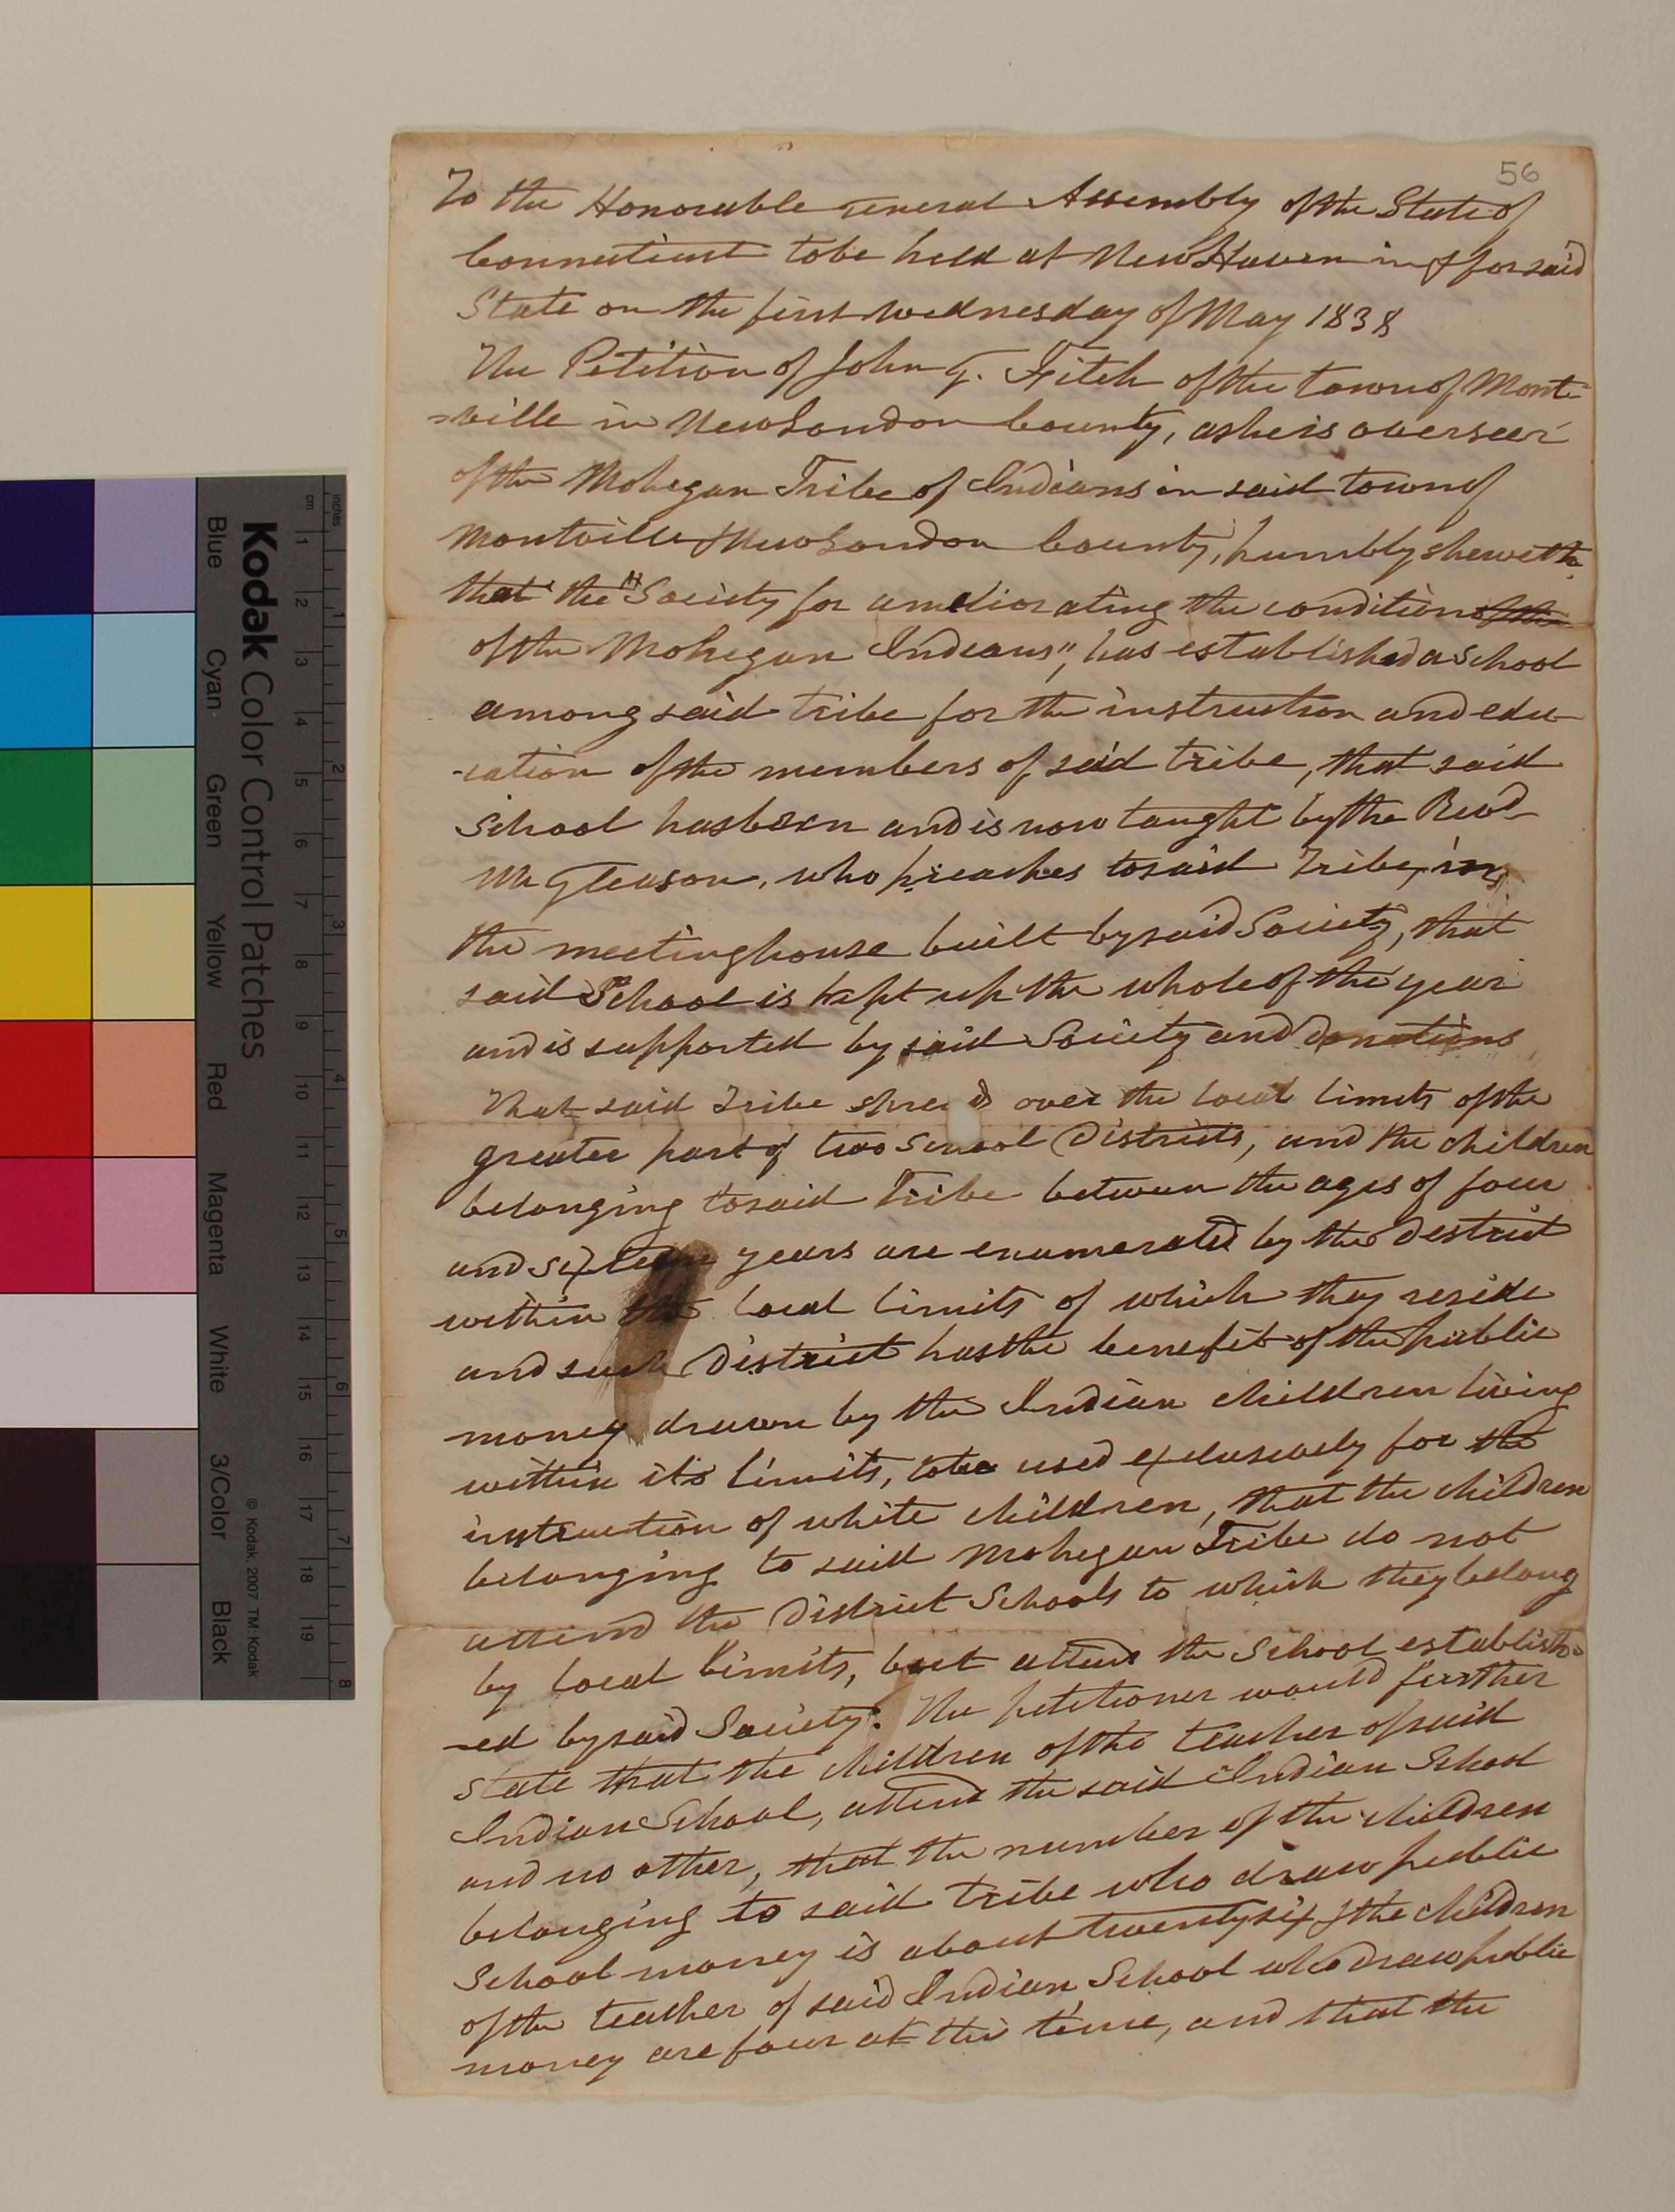 56
To the Honorable General Assembly of the State of
Connecticut to be held at New Haven in & for said
State on the first wednesday of May 1838
The Petition of John G. Fitch of the town of Mont=
=ville in New London County, as he is overseer
of the Mohegan Tribe of Indians in said town of
Montville & New London County, humbly sheweth
that the "Society for ameliorating the condition of the
of the Mohegan Indians", has established a School
among said tribe for the instruction and edu-
-cation of the members of said tribe, that said
School has been and is now taught by the Revd
Mr Gleason, who preaches to said Tribe, in
the meetinghouse built by said Society, that
said School is kept up the whole of the year
and is supported by said Society and donations
That said Tribe spread over the local limits of the
greater part of two School Districts, and the children
belonging to said Tribe between the ages of four
and sixteen years are enumerated by the district
within the local limits of which they reside
and such District has the benefit of the public
money drawn by the Indian children living
within its limits, to be used exclusively for the
instruction of white children, that the children
belonging to said Mohegan Tribe do not
attend the District Schools to which they belong
by local limits, but attend the School establish-
-ed by said Society. The petitioner would further
state that the children of the teacher of said
Indian School, attend the said Indian School
and no other, that the number of the children
belonging to said tribe who draw public
School money is about twenty six, & the children
of the teacher of said Indian School who draw public
money are four at this time, and that the
Kodak Color Control Patches
© Kodak, 2007 TM: Kodak
Blue Cyan Green Yellow Red Magenta White 3/Color Black
inches 1 2 3 4 5 6 7 8
cm 1 2 3 4 5 6 7 8 9 10 11 12 13 14 15 16 17 18 19